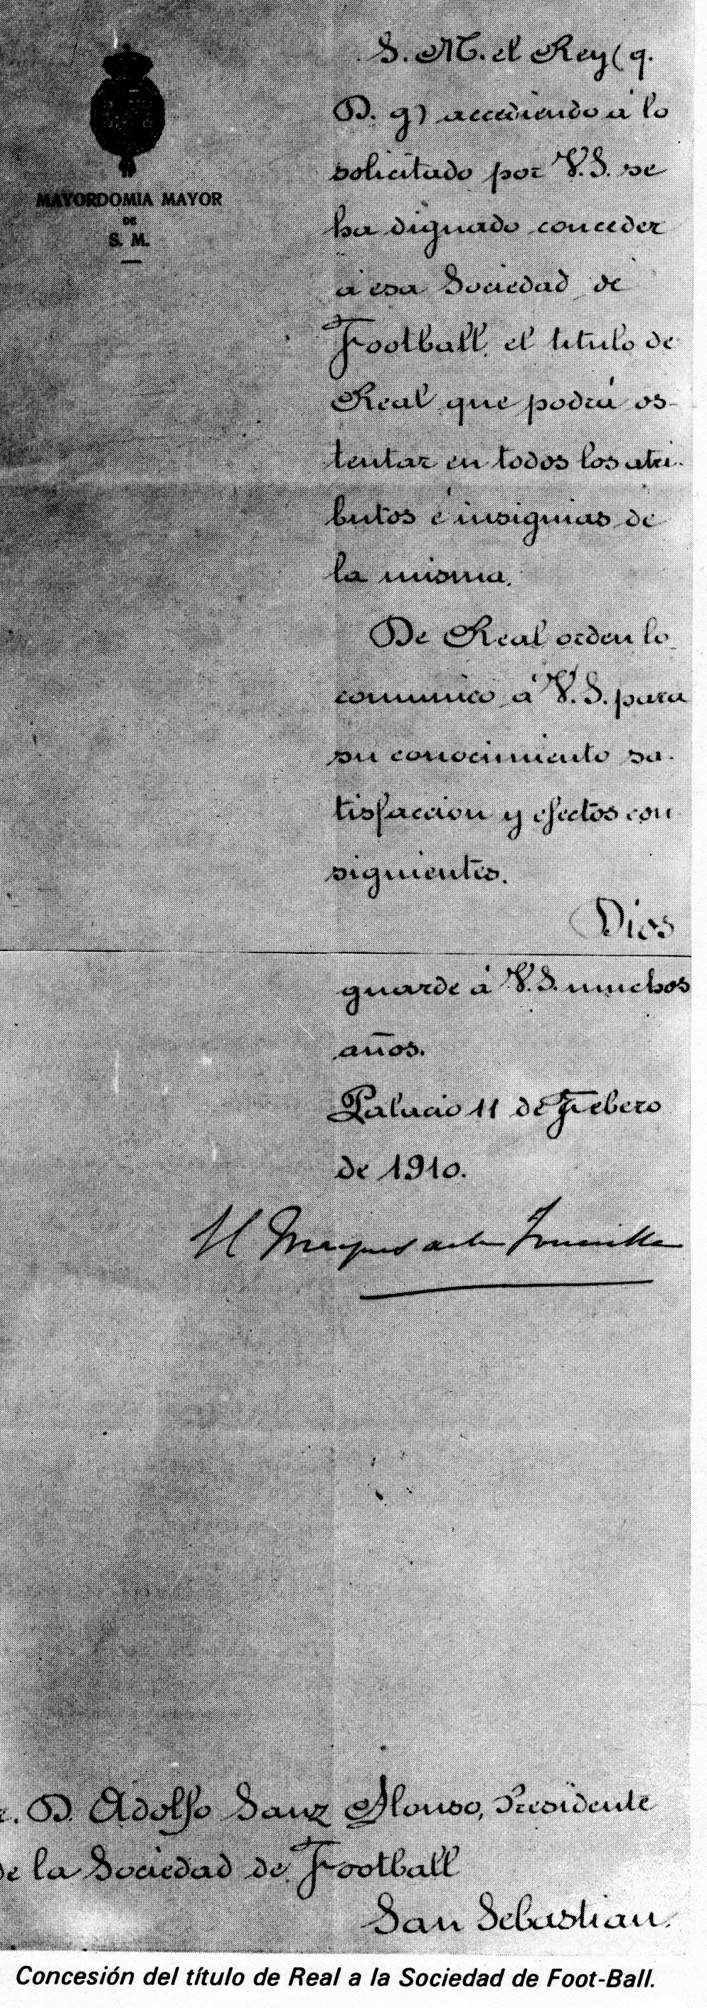 MAYORDOMIA MAYOR
DE
S. M.
S. M. el Rey (q.
D. g) accediendo á lo
solicitado por V.S. se
ha dignado conceder
á esa Sociedad de
Football, el titulo de
Real que podrá os-
tentar en todos los atri-
butos é insignias de
la misma.
De Real orden lo
comunico á V.S. para
su conocimiento sa-
tisfaccion y efectos con
siguientes.
Dios
guarde á V.S. muchos
años.
Palacio 11 de Febero
de 1910.
El Marques de la
D. Adolfo Sanz Alonso, Presidente
de la Sociedad de Football
San Sebastian.
Concesión del título de Real a la Sociedad de Foot-Ball.